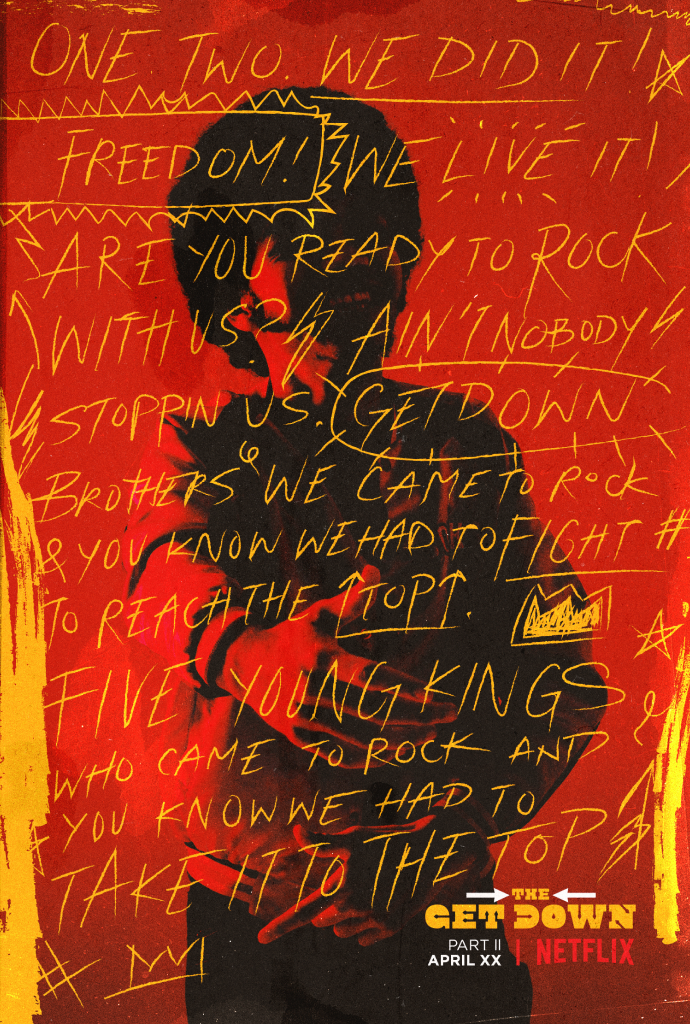 ONE TWO. WE DID IT!
FREEDOM! WE LIVE IT!
ARE YOU READY TO ROCK
WITH US? AIN'T NOBODY
STOPPIN US. GET DOWN
BROTHERS WE CAME TO ROCK
& YOU KNOW WE HAD TO FIGHT #
TO REACH THE TOP.
FIVE YOUNG KINGS
WHO CAME TO ROCK AND
YOU KNOW WE HAD TO
TAKE IT TO THE TOP
THE
GET DOWN
PART II
APRIL XX | NETFLIX
#